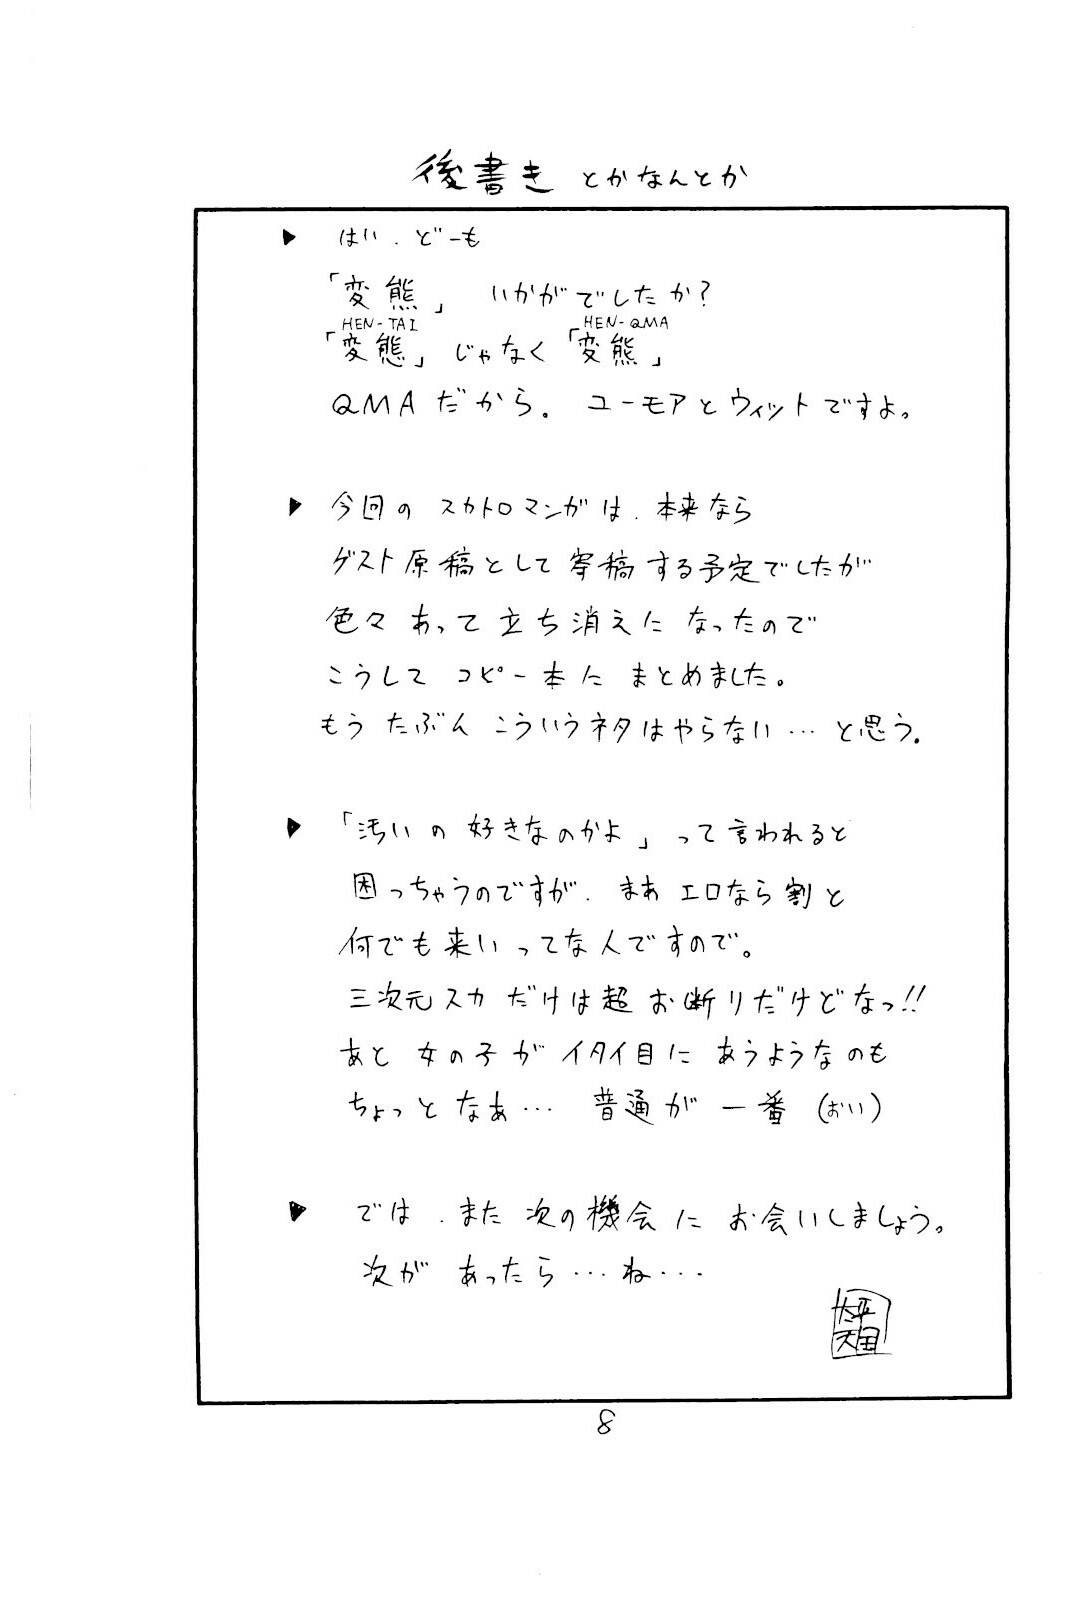 後書き とかなんとか
▶ はい、どーも
「変熊」 いかがでしたか?
HEN-TAI HEN-QMA
「変態」じゃなく「変熊」
QMAだから。 ユーモアとウィットですよ。
▶ 今回の スカトロマンガは、本来なら
ゲスト原稿として寄稿する予定でしたが
色々あって立ち消えになったので
こうして コピー本に まとめました。
もう たぶん こういうネタはやらない… と思う。
▶ 「汚いの好きなのかよ」って言われると
困っちゃうのですが、まあ エロなら割と
何でも来いってな人ですので。
三次元スカだけは超お断りだけどなっ!!
あと 女の子が イタイ目に あうようなのも
ちょっとなあ… 普通が一番 (おい)
▶ では、また 次の機会に お会いしましょう。
次が あったら…ね…
太平
天国
8